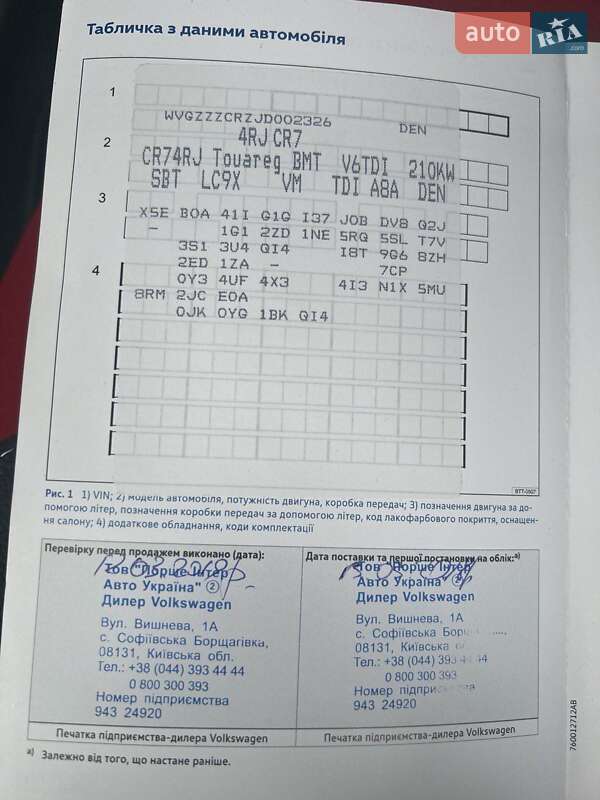 Табличка з даними автомобіля
auto RIA.com
1
WVGZZZCRZJD002326 DEN
4RJ CR7
2
CR74RJ Touareg BMT V6TDI 210KW
SBT LC9X VM TDI A8A DEN
3
X5E B0A 41I G1G I37 J0B DV8 Q2J
- 1G1 2ZD 1NE 5RQ 5SL T7V
3S1 3U4 QI4 I8T 9G6 8ZH
2ED 1ZA - 7CP
4
0Y3 4UF 4X3 4I3 N1X 5MU
8RM 2JC E0A
0JK 0YG 1BK QI4
BTT-0507
Рис. 1 1) VIN; 2) модель автомобіля, потужність двигуна, коробка передач; 3) позначення двигуна за до-
помогою літер, позначення коробки передач за допомогою літер, код лакофарбового покриття, оснащен-
ня салону; 4) додаткове обладнання, коди комплектації
Перевірку перед продажем виконано (дата):
Тов "Порше Інтер
Авто Україна" 2
Дилер Volkswagen
Вул. Вишнева, 1А
с. Софіївська Борщагівка,
08131, Київська обл.
Тел.: +38 (044) 393 44 44
0 800 300 393
Номер підприємства
943 24920
Печатка підприємства-дилера Volkswagen
Дата поставки та першої постановки на облік:а)
Тов "Порше Інтер
Авто Україна" 2
Дилер Volkswagen
Вул. Вишнева, 1А
с. Софіївська
08131, Київська
Тел.: +38 (044) 393 44
0 800 300 393
Номер
943 24920
Печатка підприємства-дилера Volkswagen
а) Залежно від того, що настане раніше.
760012712AB